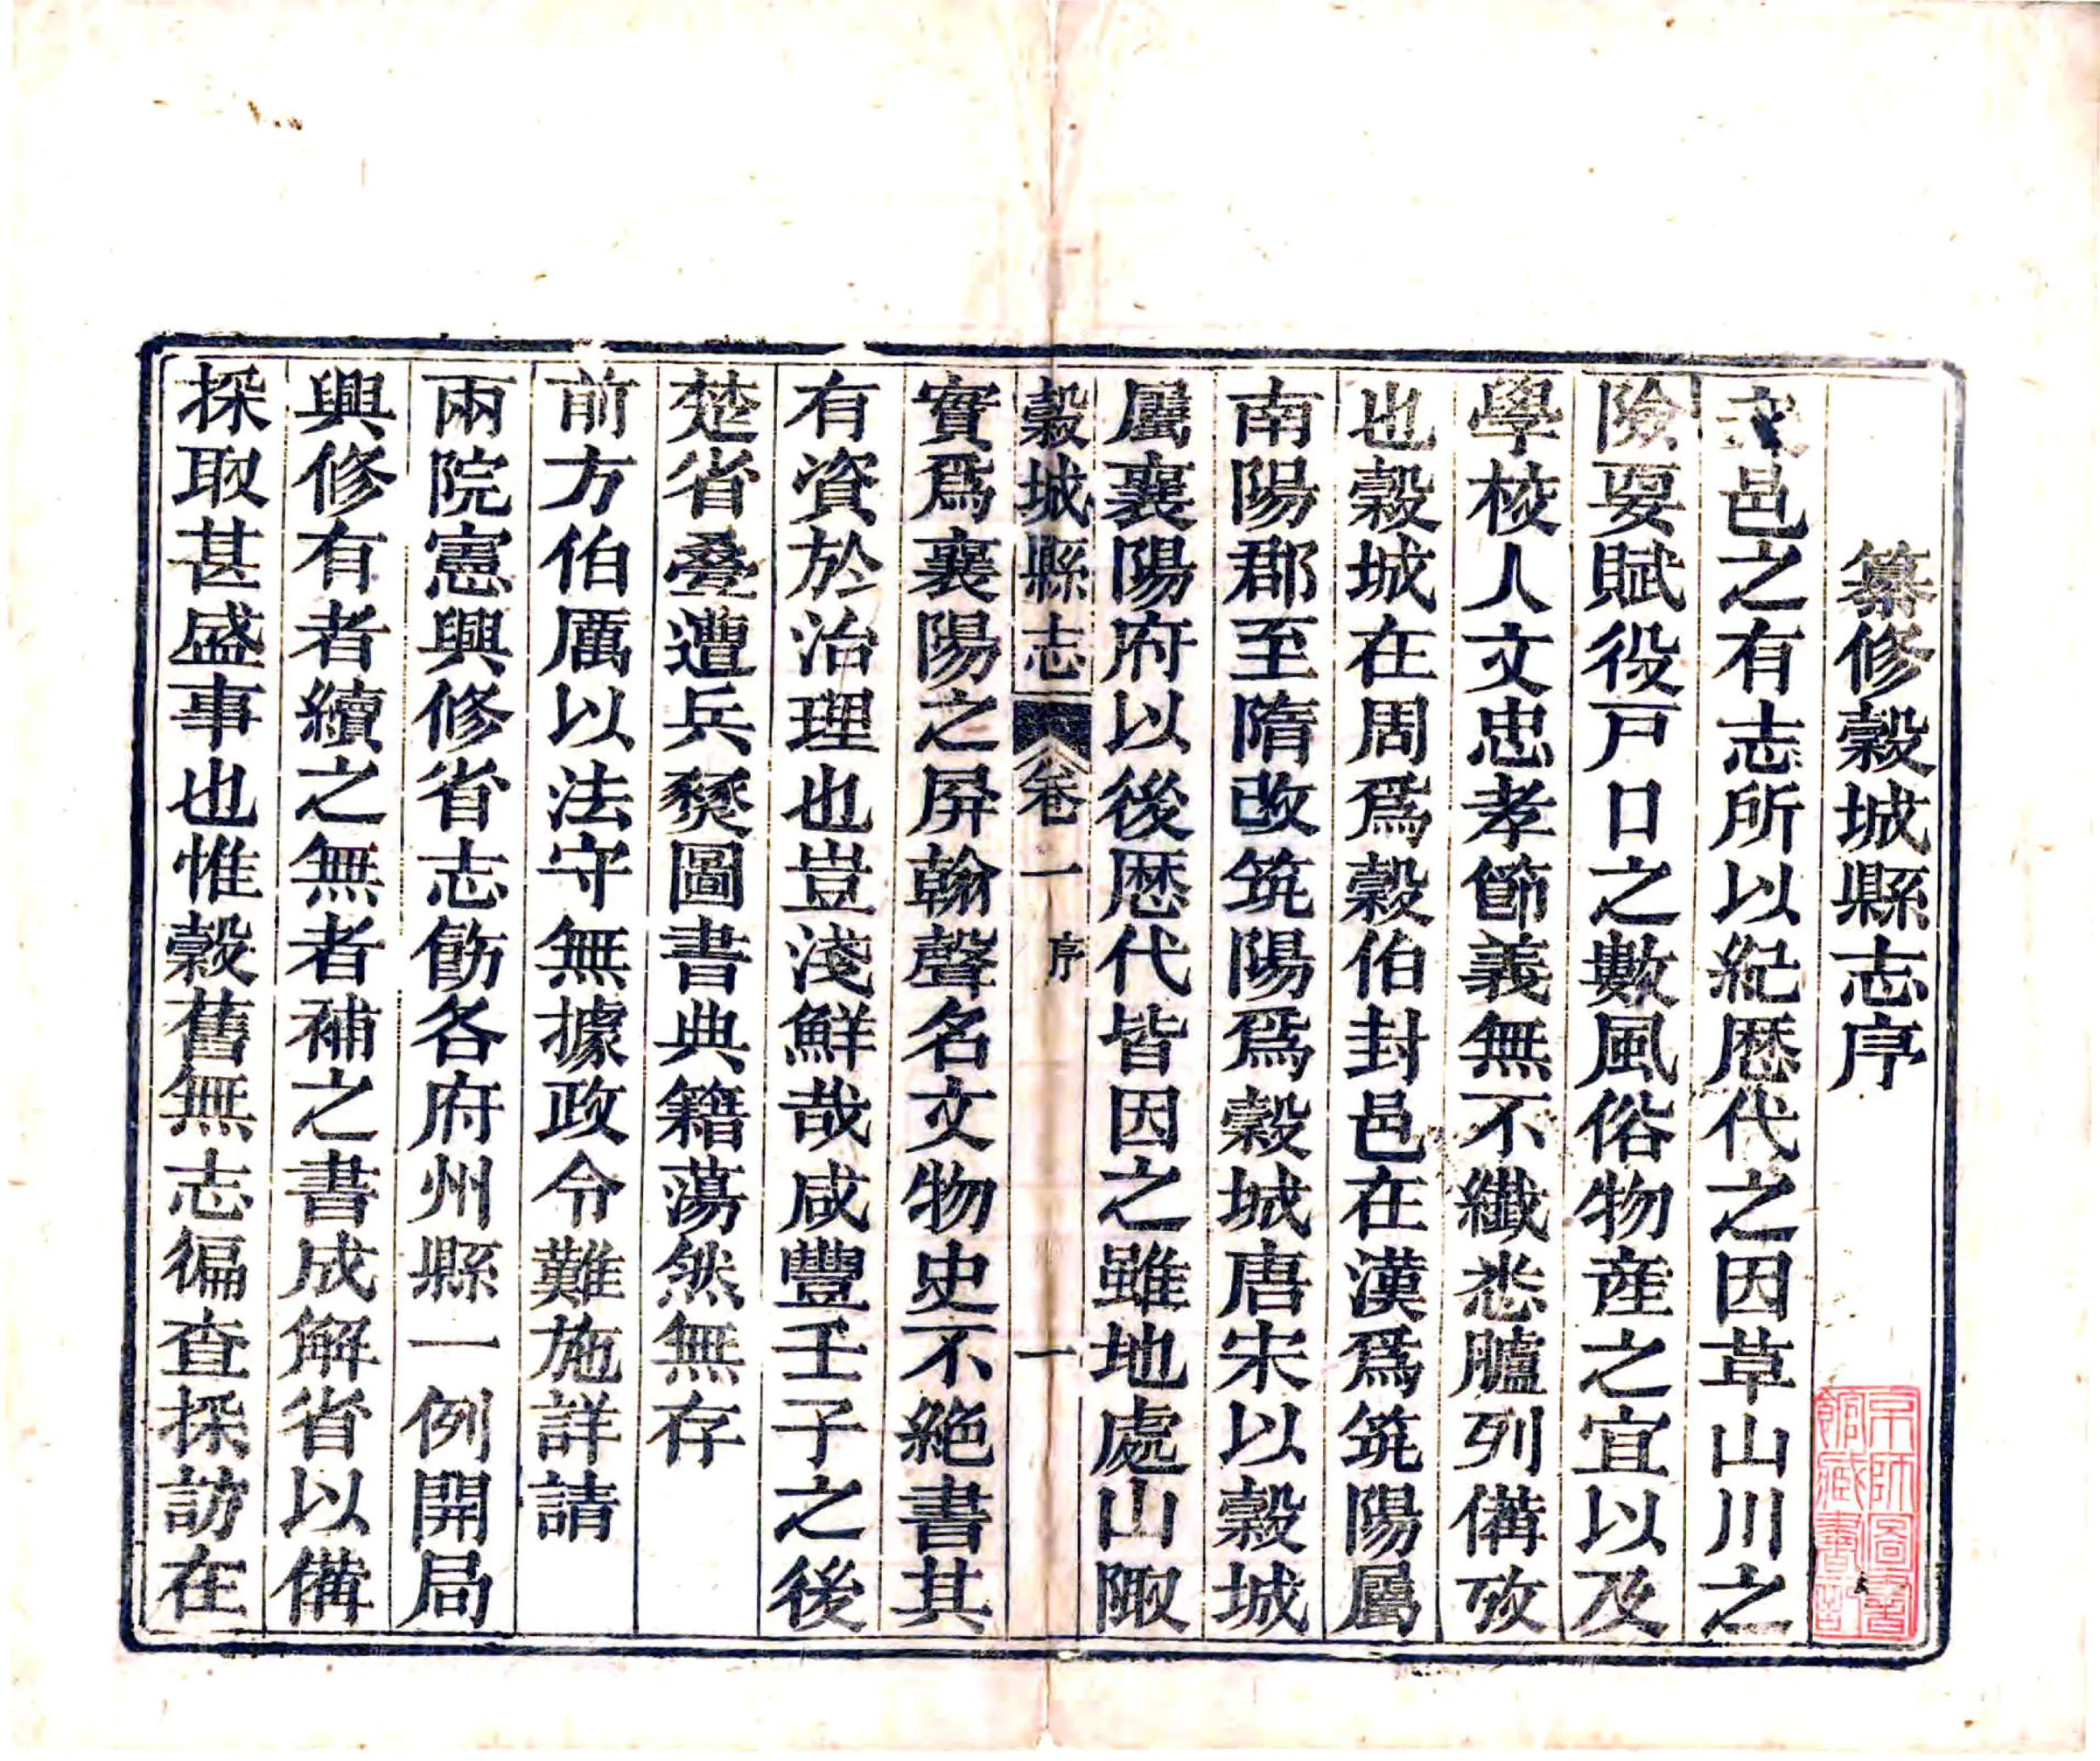 纂修穀城縣志序
邑之有志所以紀歴代之因草山川之
險要賦役戸口之數風俗物産之宜以及
學校人文忠孝節義無不纖悉臚列備攷
也穀城在周爲穀伯封邑在漢爲筑陽屬
南陽郡至隋改筑陽爲穀城唐宋以穀城
屬襄陽府以後歴代皆因之雖地處山陬
穀城縣志 卷一 序 一
實爲襄陽之屏翰聲名文物史不絶書其
有資於治理也豈淺鮮哉咸豐壬子之後
楚省叠遭兵燹圖書典籍蕩然無存
前方伯厲以法守無據政令難施詳請
兩院憲興修省志飭各府州縣一例開局
興修有者續之無者補之書成解省以備
採取甚盛事也惟穀舊無志徧查採訪在
京師圖書
館藏書記